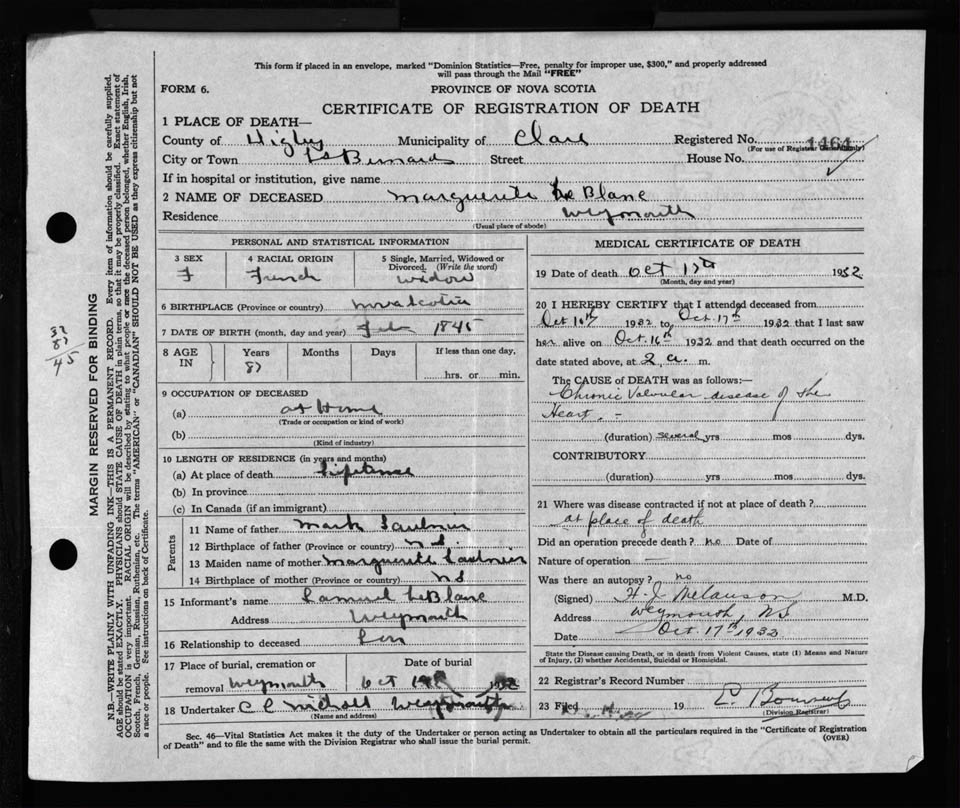 This form if placed in an envelope, marked "Dominion Statistics—Free, penalty for improper use, $300," and properly addressed
will pass through the Mail "FREE"
FORM 6.
PROVINCE OF NOVA SCOTIA
CERTIFICATE OF REGISTRATION OF DEATH
1 PLACE OF DEATH—
County of Digby Municipality of Clare Registered No. 1464
(For use of Registrar General only)
City or Town St Bernard Street House No.
If in hospital or institution, give name
2 NAME OF DECEASED Marguerite Le Blanc
Residence Weymouth
(Usual place of abode)
PERSONAL AND STATISTICAL INFORMATION
3 SEX
F
4 RACIAL ORIGIN
French
5 Single, Married, Widowed or
Divorced. (Write the word)
widow
6 BIRTHPLACE (Province or country) Nova Scotia
7 DATE OF BIRTH (month, day and year) Feb 1845
8 AGE
IN
Years
87
Months
Days
If less than one day,
hrs. or min.
9 OCCUPATION OF DECEASED
(a) at Home
(Trade or occupation or kind of work)
(b)
(Kind of industry)
10 LENGTH OF RESIDENCE (in years and months)
(a) At place of death Lifetime
(b) In province
(c) In Canada (if an immigrant)
Parents
11 Name of father Mark Saulnier
12 Birthplace of father (Province or country) N S.
13 Maiden name of mother Marguerite Saulnier
14 Birthplace of mother (Province or country) N S
15 Informant's name Samuel LeBlanc
Address Weymouth
16 Relationship to deceased Son
17 Place of burial, cremation or
removal Weymouth
Date of burial
Oct
18 Undertaker C C Nicholl Weymouth
(Name and address)
MEDICAL CERTIFICATE OF DEATH
19 Date of death Oct 17th 1932
(Month, day and year)
20 I HEREBY CERTIFY that I attended deceased from
Oct 10th 1932 to Oct. 17th 1932 that I last saw
her alive on Oct. 16th 1932 and that death occurred on the
date stated above, at 2 a. m.
The CAUSE OF DEATH was as follows:—
Chronic Valvular disease of the
Heart. –
(duration) several yrs mos dys.
CONTRIBUTORY
(duration) yrs mos dys.
21 Where was disease contracted if not at place of death?
at place of death
Did an operation precede death? no Date of
Nature of operation —
Was there an autopsy? no
(Signed) H. J. Melanson M.D.
Address Weymouth, N.S
Date Oct. 17th 1932
State the Disease causing Death, or in death from Violent Causes, state (1) Means and Nature
of Injury, (2) whether Accidental, Suicidal or Homicidal.
22 Registrar's Record Number
23 Filed 19
(Division Registrar)
Sec. 46—Vital Statistics Act makes it the duty of the Undertaker or person acting as Undertaker to obtain all the particulars required in the "Certificate of Registration
of Death" and to file the same with the Division Registrar who shall issue the burial permit.
(OVER)
MARGIN RESERVED FOR BINDING
N.B.—WRITE PLAINLY WITH UNFADING INK—THIS IS A PERMANENT RECORD. Every item of information should be carefully supplied.
AGE should be stated EXACTLY. PHYSICIANS should STATE CAUSE OF DEATH in plain terms, so that it may be properly classified. Exact statement of
OCCUPATION is very important. RACIAL ORIGIN will be described by stating to what people or race the deceased person belonged, whether English, Irish,
Scotch, French, German, Russian, Ruthenian, etc. The terms "AMERICAN" or "CANADIAN" SHOULD NOT BE USED as they express citizenship but not
a race or people. See instructions on back of Certificate.
32
87
45